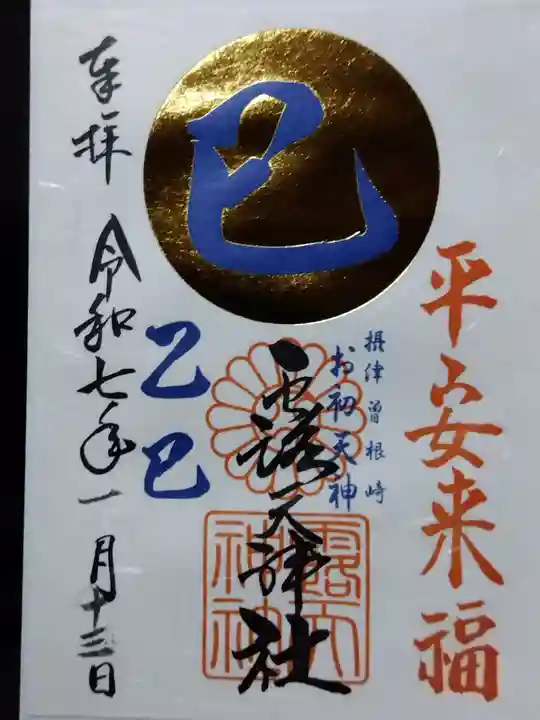 巳
平安来福
摂津曽根崎
お初天神
露天神社
乙巳
奉拝
令和七年一月十三日